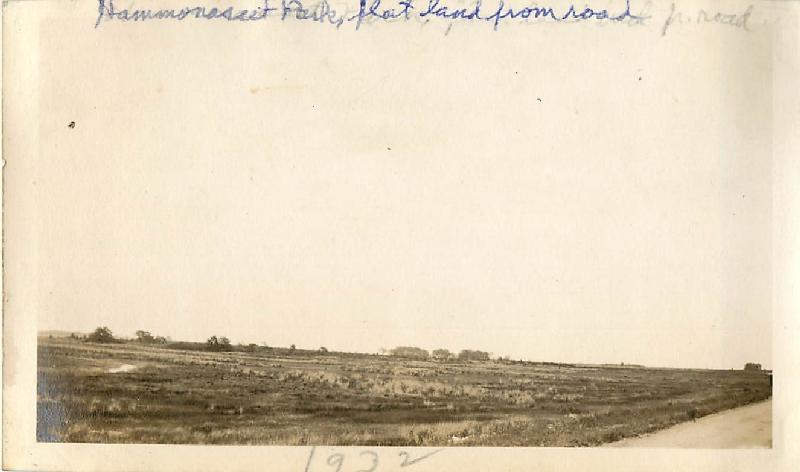 Hammonasset Park, flat land from road
fr. road
1932